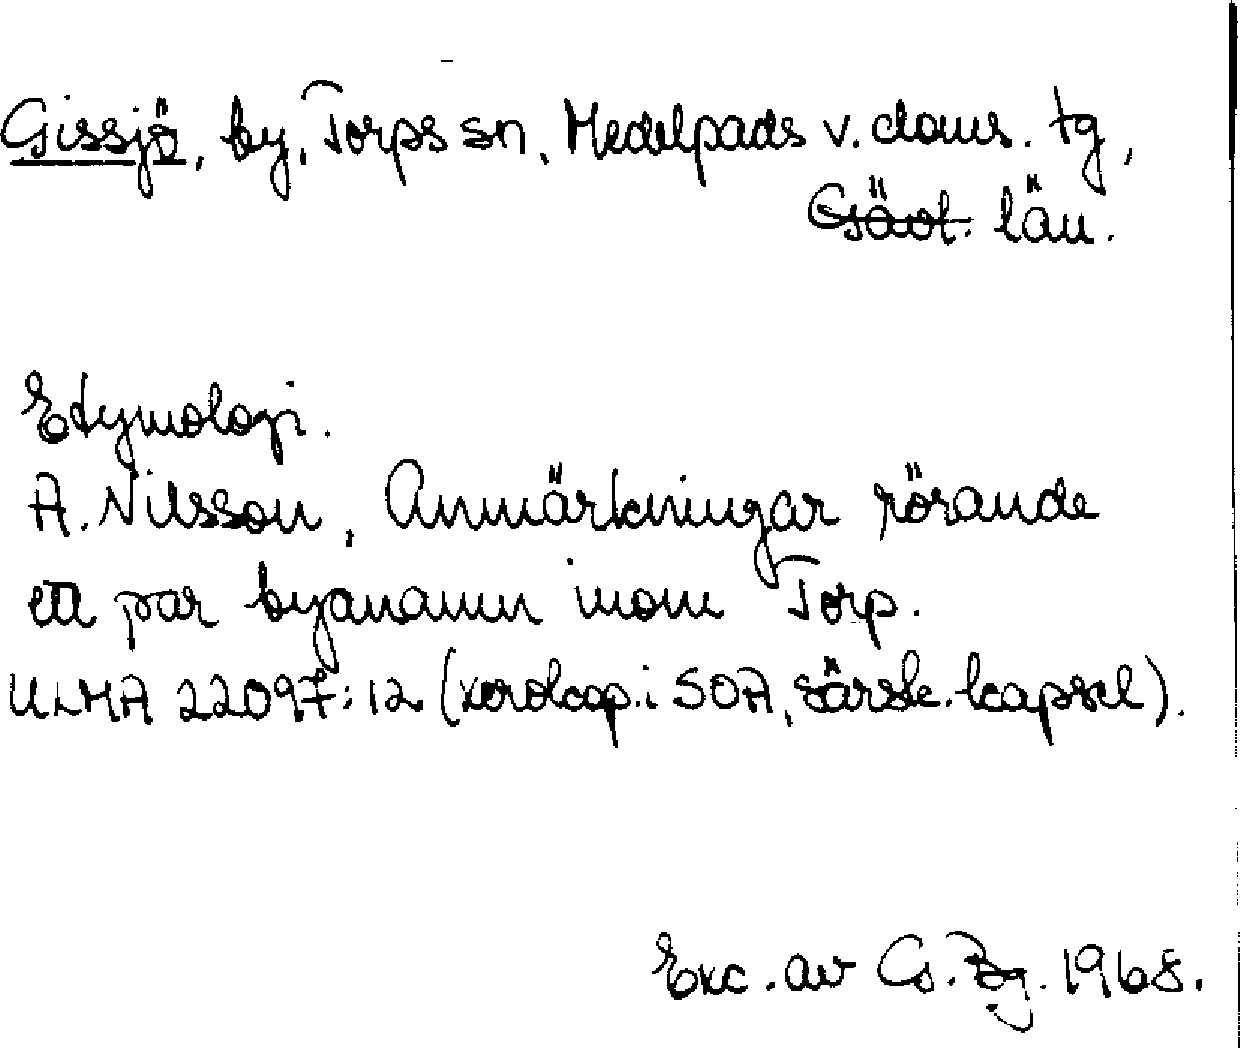 Gissjö, by, Torps sn, Medelpads v. doms. tg,
Gävl. län.
Etymologi.
A. Nilsson, Anmärkningar rörande
ett par byanamn inom Torp.
ULMA 22097:12 (xerokop. i SOA, särsk. kapsel).
Exc. av G. Bg. 1968.